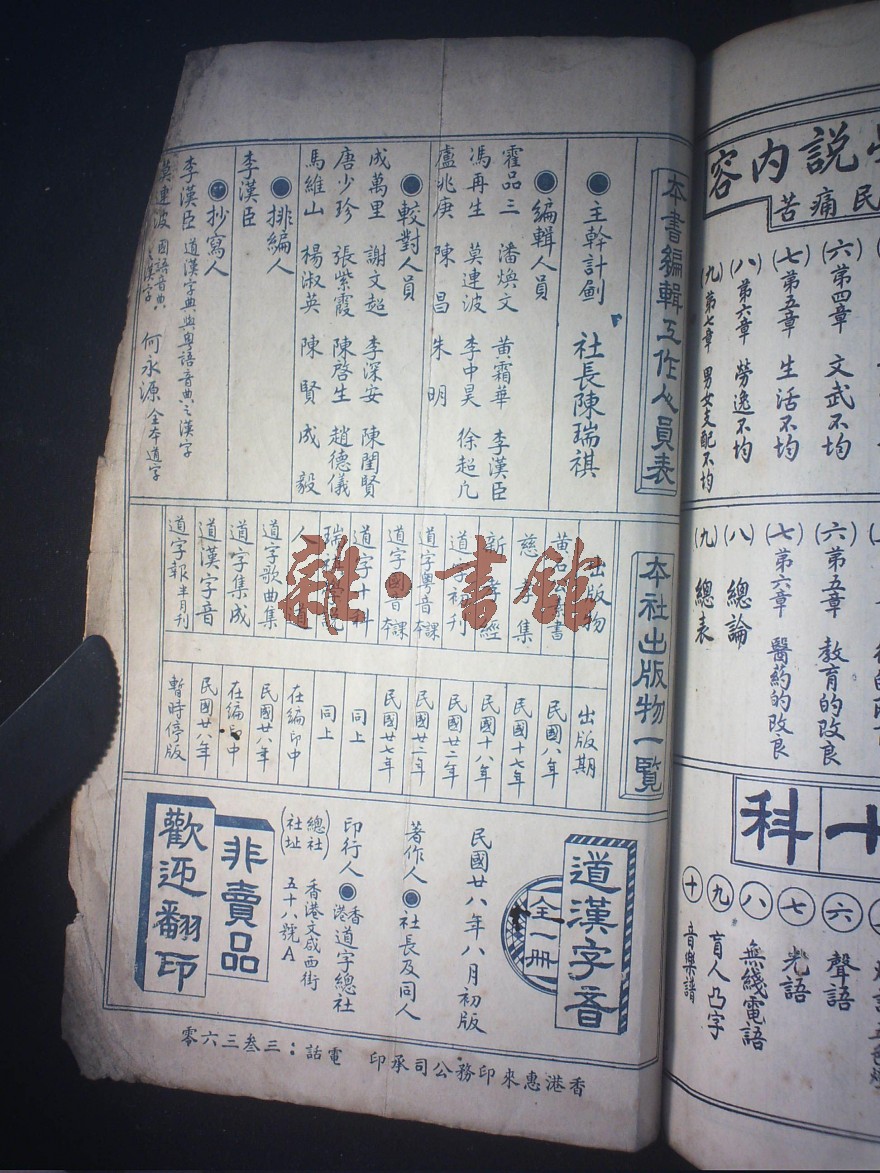 本書編輯工作人員表
●主幹計劃 社長陳瑞祺
●編輯人員
霍品三 潘煥文 黃霜華 李漢臣
馮再生 莫連波 李中昊 徐超凡
盧兆庚 陳昌 朱明
●較對人員
成萬里 謝文超 李深安 陳閨賢
唐少珍 張紫霞 陳啓生 趙德儀
馬維山 楊淑英 陳賢 成毅
●排編人
李漢臣
●抄寫人
李漢臣 道漢字典與粵語音典之漢字
莫連波 國語音典 漢字 何永源 全本道字
本社出版物一覽
出版物 出版期
民國八年
慈 集 民國十七年
新 經 民國十八年
道字 刊 民國廿二年
道字粵音課本 民國廿二年
道字國音課本 民國廿七年
道字十科 同上
瑞 同上
人 在編印中
道字歌曲集 民國廿八年
道字集成 在編印中
道漢字音 民國廿八年
道字報半月刊 暫時停版
道漢字音
全一冊
民國廿八年八月初版
著作人●社長及同人
印行人●香港道字總社
(總社社址) 香港文咸西街五十八號A
非賣品
歡迎翻印
香港惠來印務公司承印 電話:三叁三六零
說內容
民痛苦
(六)第四章 文武不均
(七)第五章 生活不均
(八)第六章 勞逸不均
(九)第七章 男女支配不均
(六)第五章 教育的改良
(七)第六章 醫葯的改良
(八)總論
(九)總表
十科
六 聲語
七 光語
八 無綫電語
九 盲人凸字
十 音樂譜
雜·書館